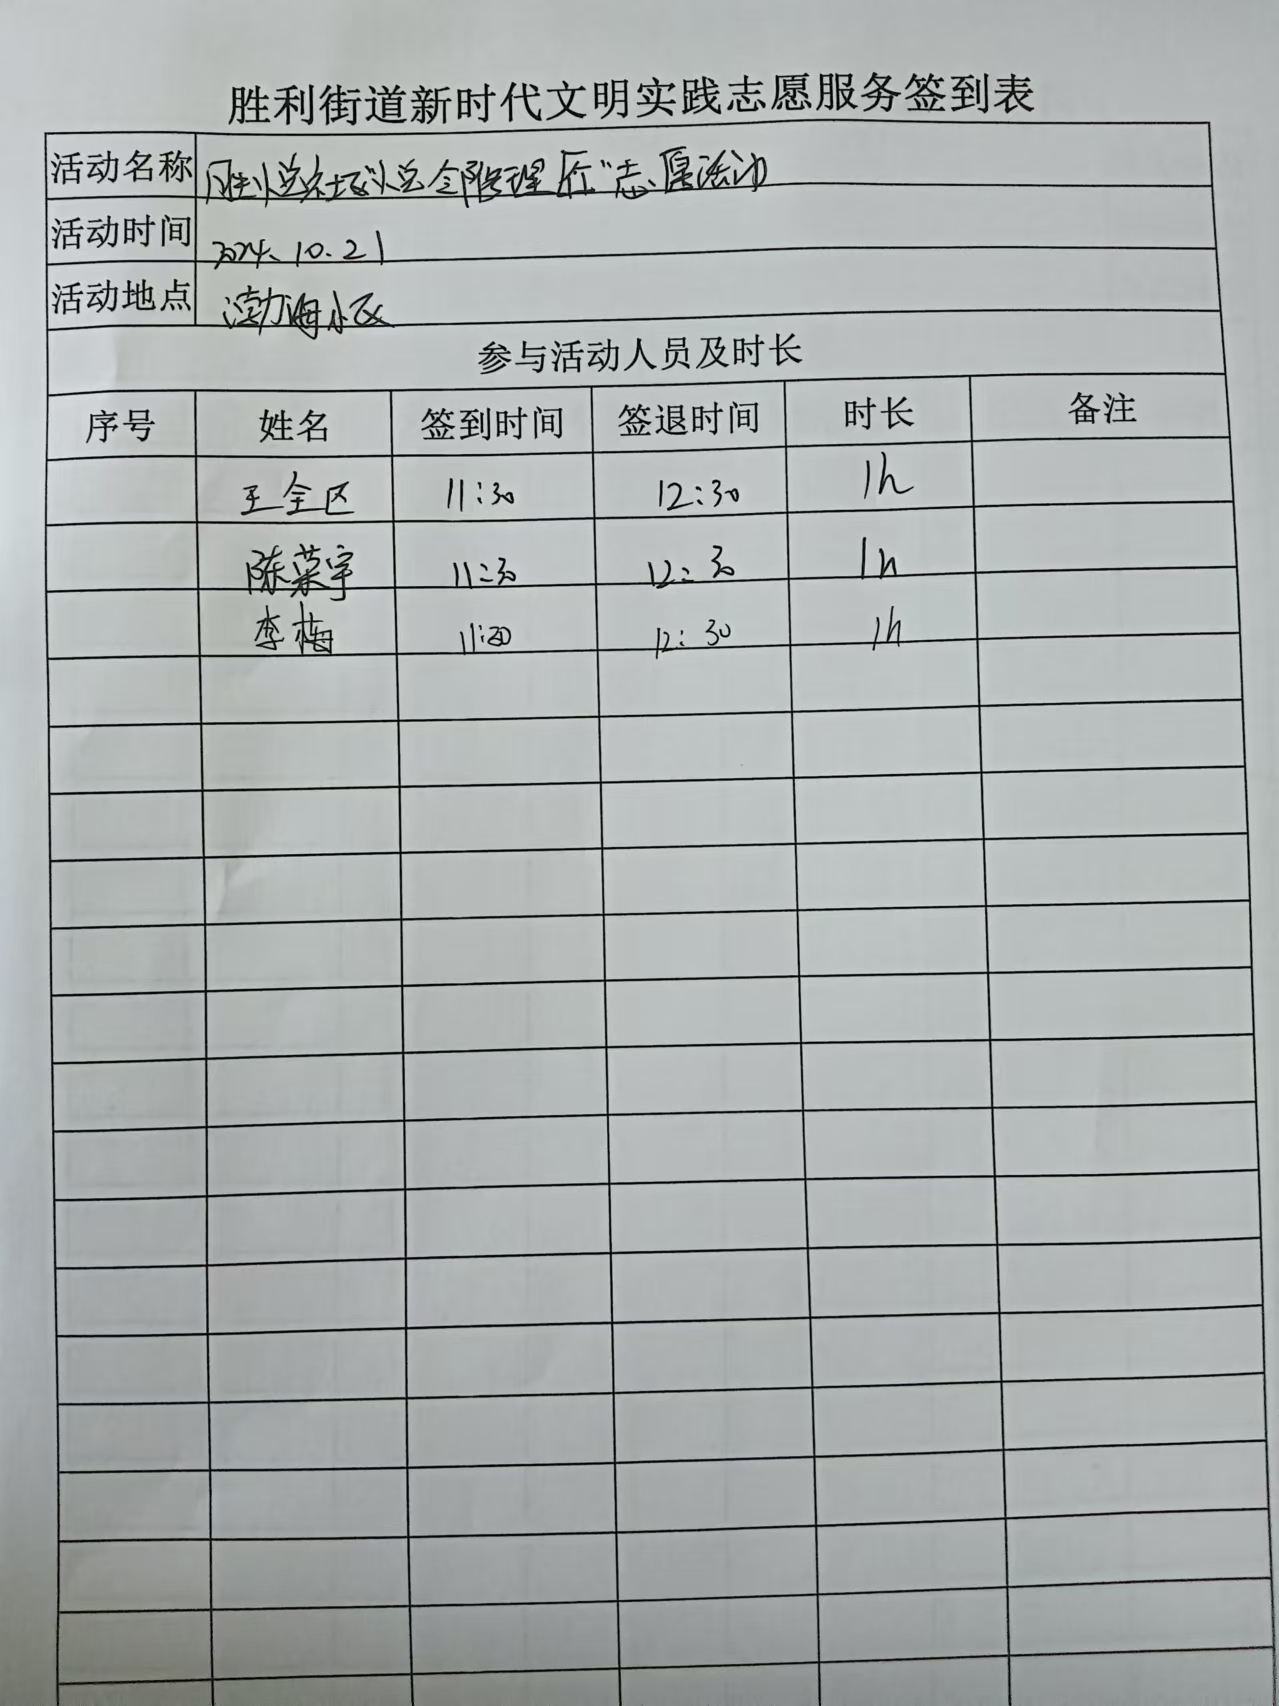 胜利街道新时代文明实践志愿服务签到表
活动名称 志愿活动
活动时间 2024.10.21
活动地点 渤海小区
参与活动人员及时长
序号 姓名 签到时间 签退时间 时长 备注
王全区 11:30 12:30 1h
陈荣宇 11:30 12:30 1h
李梅 11:30 12:30 1h